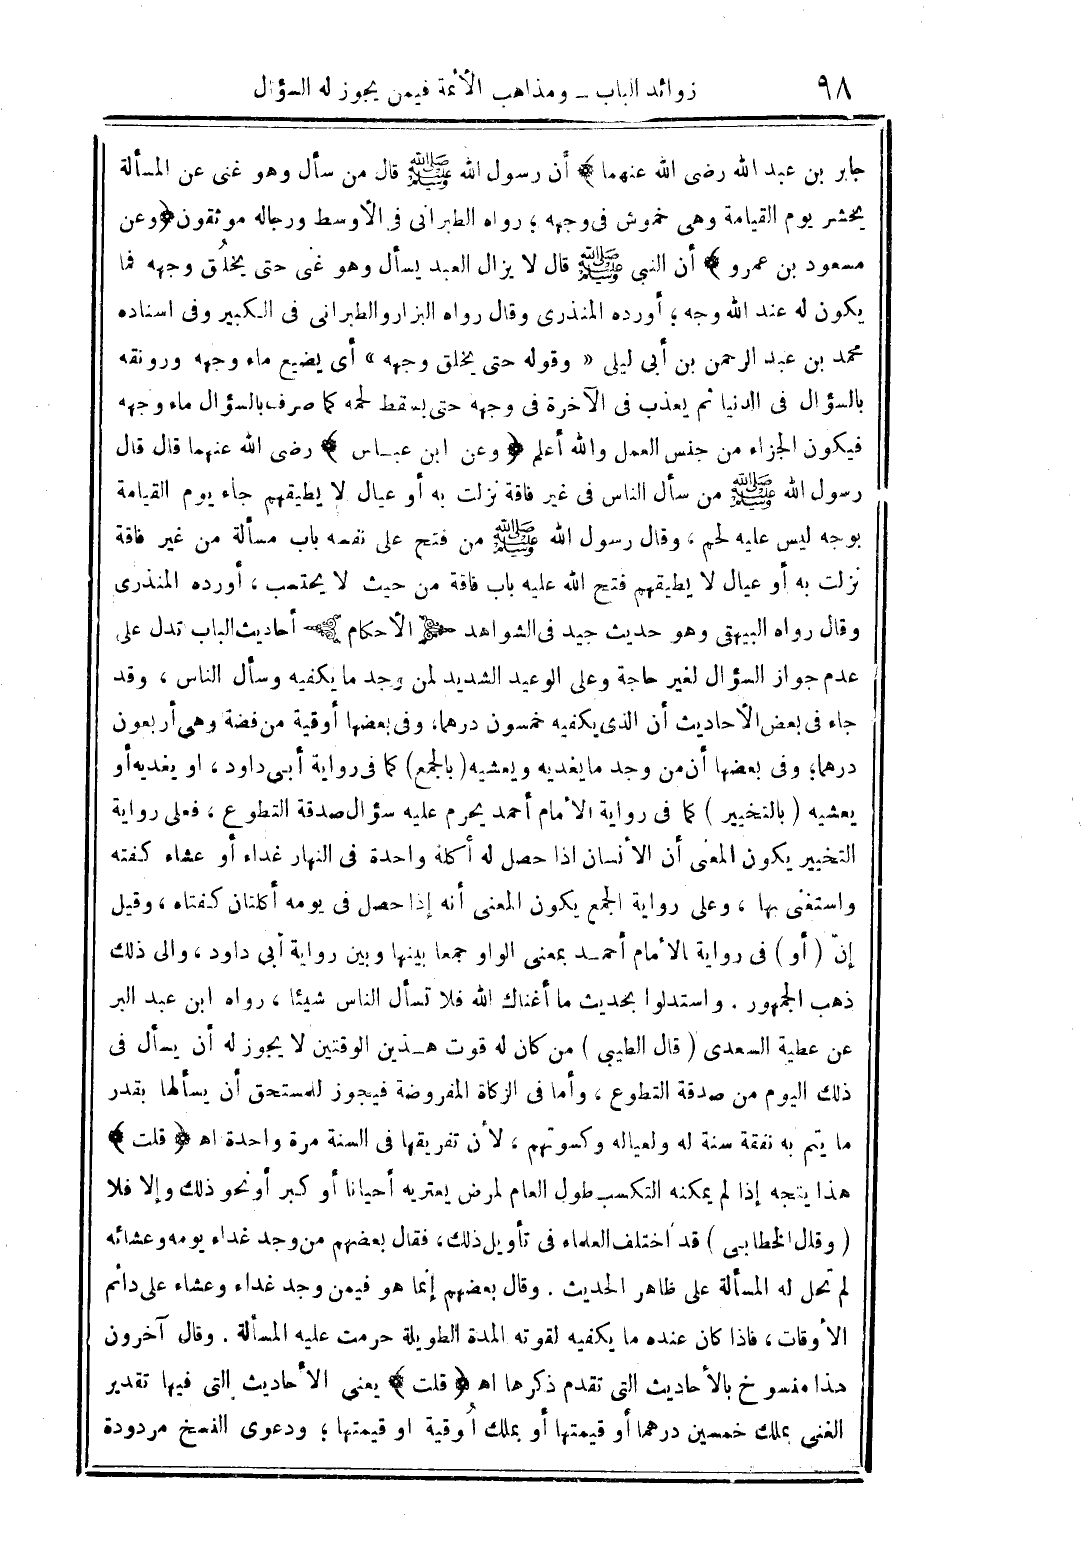 ٩٨ زوائد الباب ــ ومذاهب الأئمة فيمن يجوز له السؤال
جابر بن عبد الله رضى الله عنهما ﴾ أن رسول الله ﷺ قال من سأل وهو غنى عن المسألة
يحشر يوم القيامة وهى خموش فى وجهه ؛ رواه الطبرانى فى الأوسط ورجاله موثقون ﴿ وعن
مسعود بن عمرو ﴾ أن النبى ﷺ قال لا يزال العبد يسأل وهو غنى حتى يخلُق وجهه فما
يكون له عند الله وجه ؛ أورده المنذرى وقال رواه البزار والطبرانى فى الكبير وفى اسناده
محمد بن عبد الرحمن بن أبى ليلى « وقوله حتى يخلق وجهه » أى يضيع ماء وجهه ورونقه
بالسؤال فى الدنيا ثم يعذب فى الآخرة فى وجهه حتى يسقط لحمه كما صرف بالسؤال ماء وجهه
فيكون الجزاء من جنس العمل والله أعلم ﴿ وعن ابن عباس ﴾ رضى الله عنهما قال قال
رسول الله ﷺ من سأل الناس فى غير فاقة نزلت به أو عيال لا يطيقهم جاء يوم القيامة
بوجه ليس عليه لحم ، وقال رسول الله ﷺ من فتح على نفسه باب مسألة من غير فاقة
نزلت به أو عيال لا يطيقهم فتح الله عليه باب فاقة من حيث لا يحتسب ، أورده المنذرى
وقال رواه البيهقى وهو حديث جيد فى الشواهد الأحكام أحاديث الباب تدل على
عدم جواز السؤال لغير حاجة وعلى الوعيد الشديد لمن وجد ما يكفيه وسأل الناس ، وقد
جاء فى بعض الأحاديث أن الذى يكفيه خمسون درهما، وفى بعضها أوقية من فضة وهى أربعون
درهما؛ وفى بعضها أن من وجد ما يغديه ويعشيه ( بالجمع ) كما فى رواية أبى داود ، او يغديه أو
يعشيه ( بالتخيير ) كما فى رواية الأمام أحمد يحرم عليه سؤال صدقة التطوع ، فعلى رواية
التخيير يكون المعنى أن الأنسان اذا حصل له أكلة واحدة فى النهار غداء أو عشاء كفته
واستغنى بها ، وعلى رواية الجمع يكون المعنى أنه إذا حصل فى يومه أكلتان كفتاه ، وقيل
إنّ ( أو ) فى رواية الأمام أحمد بمعنى الواو جمعا بينها وبين رواية أبى داود ، والى ذلك
ذهب الجمهور . واستدلوا بحديث ما أغناك الله فلا تسأل الناس شيئا ، رواه ابن عبد البر
عن عطية السعدى ( قال الطيبى ) من كان له قوت هذين الوقتين لا يجوز له أن يسأل فى
ذلك اليوم من صدقة التطوع ، وأما فى الزكاة المفروضة فيجوز للمستحق أن يسألها بقدر
ما يتم به نفقة سنة له ولعياله وكسوتهم ، لأن تفريقها فى السنة مرة واحدة اه ﴿ قلت ﴾
هذا يتجه إذا لم يمكنه التكسب طول العام لمرض يعتريه أحيانا أو كبر أو نحو ذلك وإلا فلا
( وقال الخطابى ) قد أختلف العلماء فى تأويل ذلك، فقال بعضهم من وجد غداء يومه وعشائه
لم تحل له المسألة على ظاهر الحديث . وقال بعضهم إنما هو فيمن وجد غداء وعشاء على دائم
الأوقات ، فاذا كان عنده ما يكفيه لقوته المدة الطويلة حرمت عليه المسألة . وقال آخرون
هذا منسوخ بالأحاديث التى تقدم ذكرها اه ﴿ قلت ﴾ يعنى الأحاديث التى فيها تقدير
الغنى بملك خمسين درهما أو قيمتها أو بملك أُوقية او قيمتها ؛ ودعوى النسخ مردودة